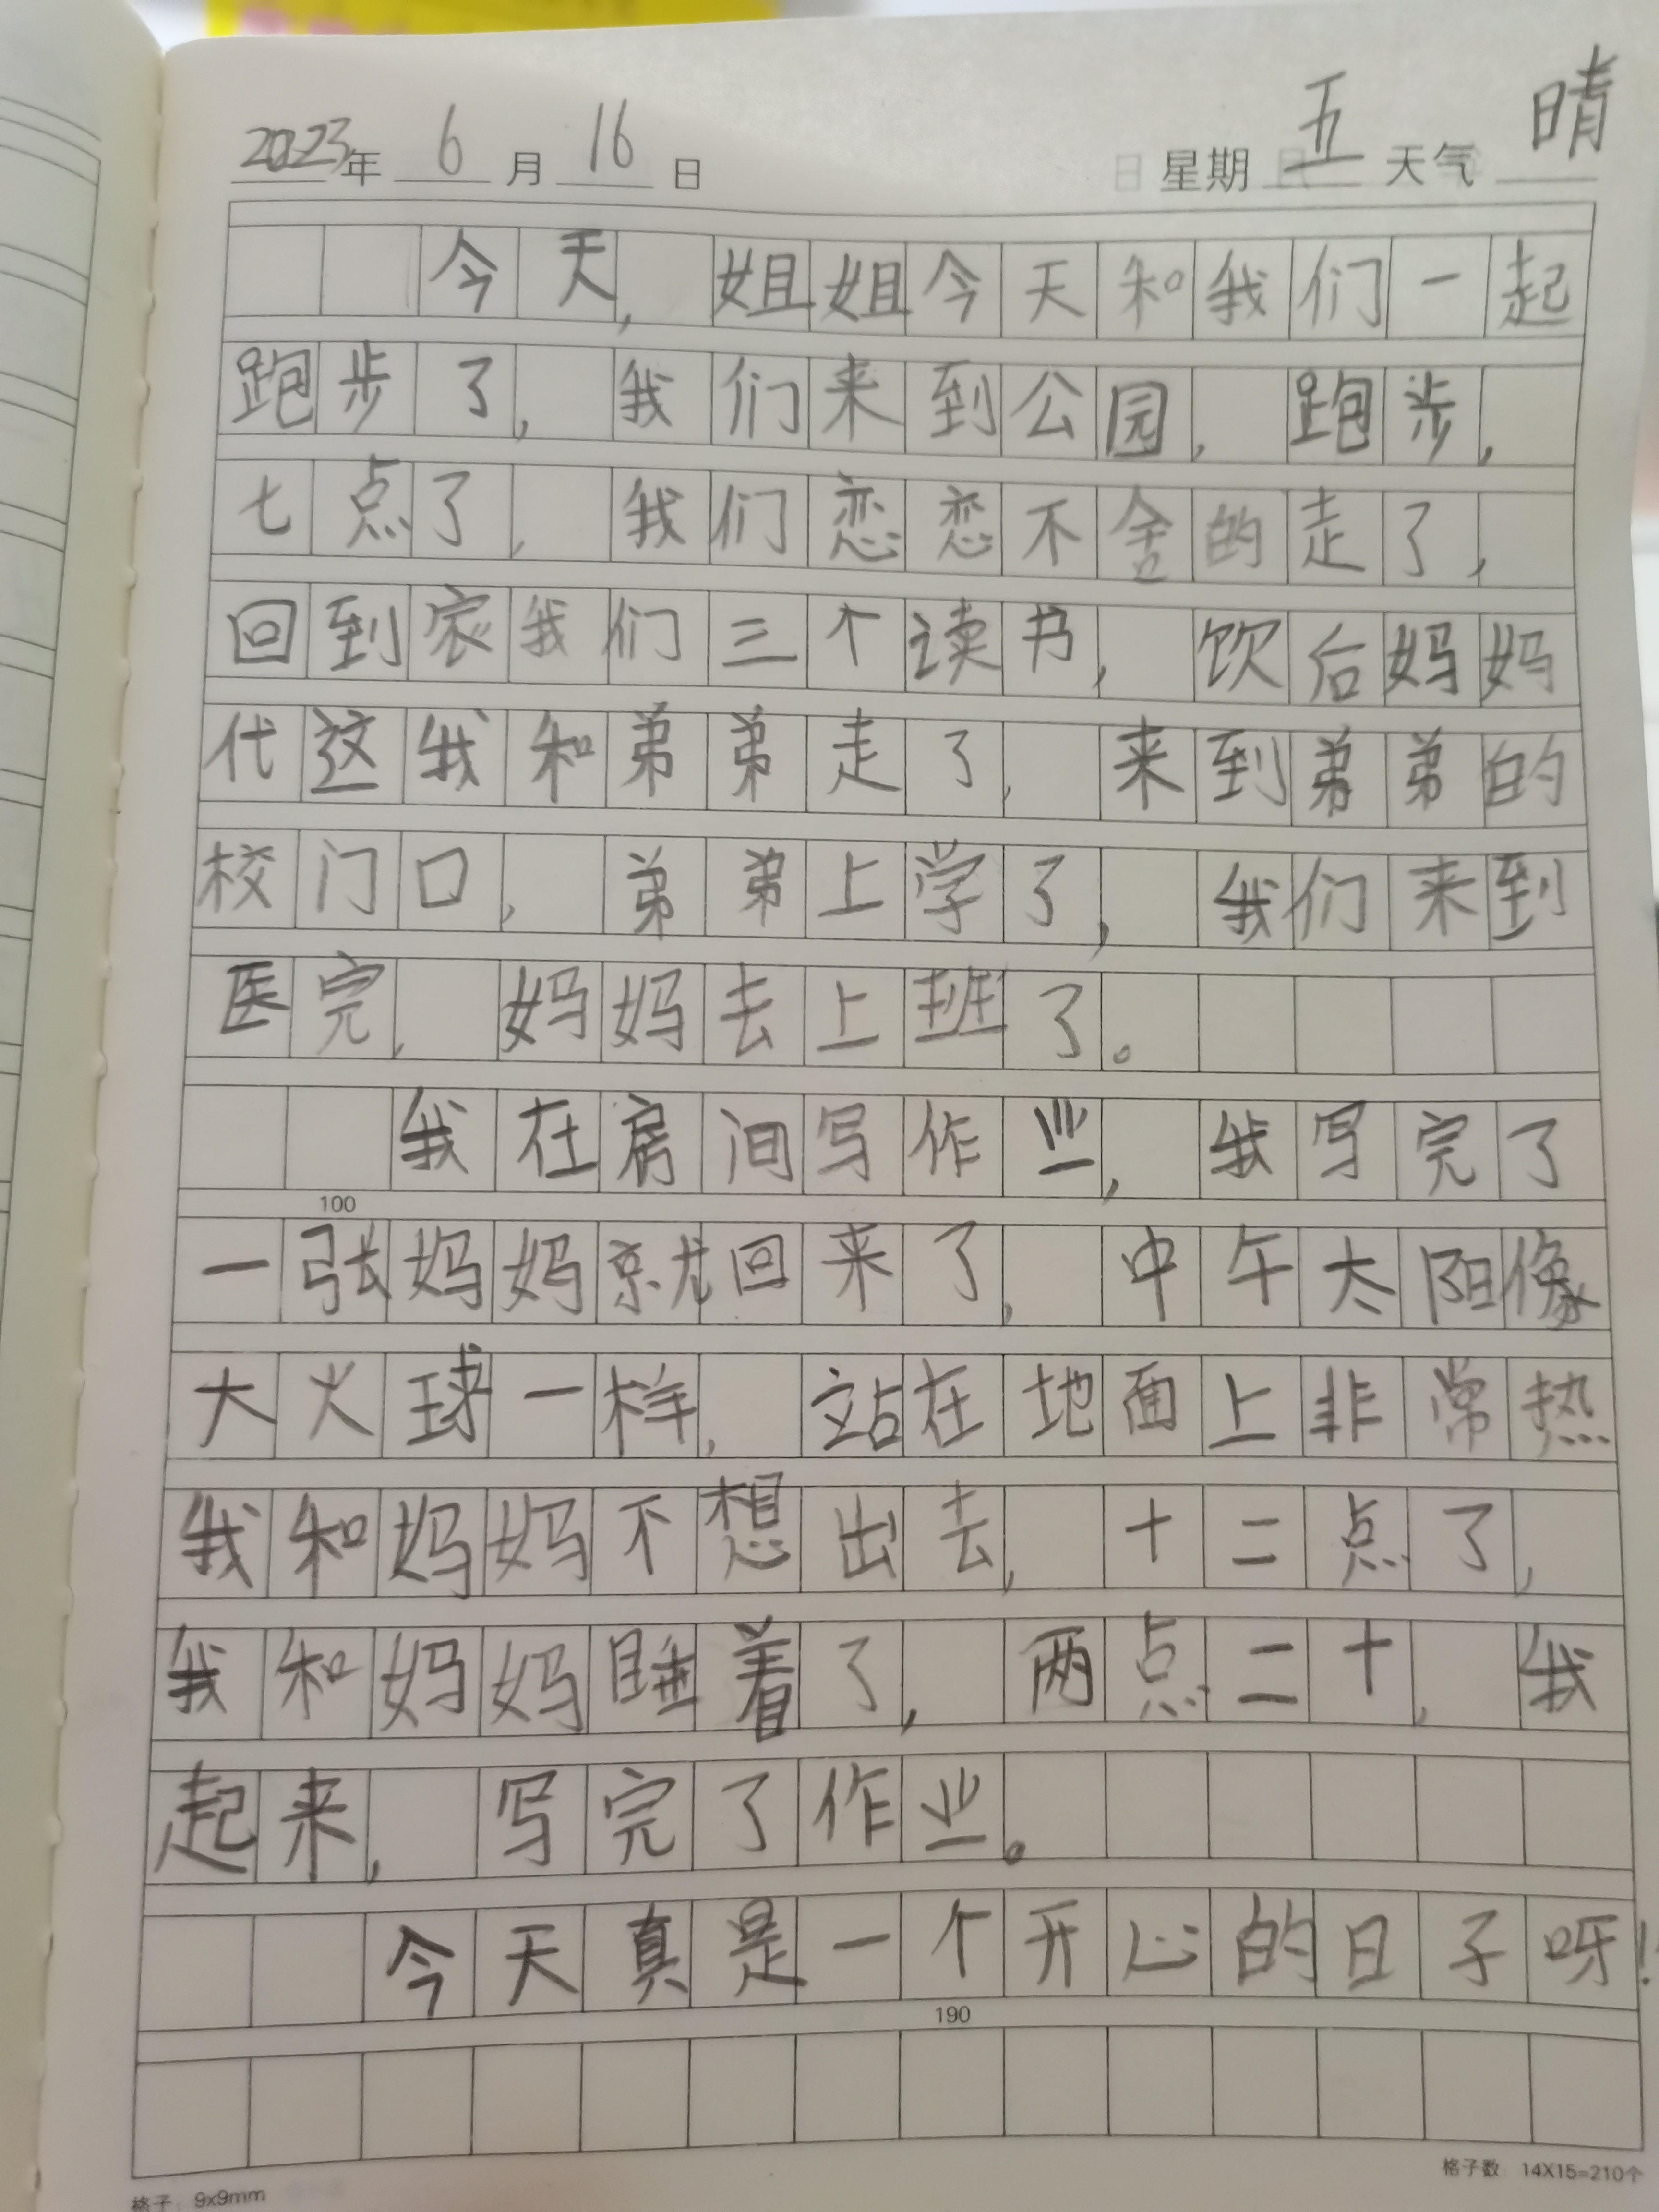 2023年 6 月 16 日 星期 五 天气 晴
今天,姐姐今天和我们一起
跑步了,我们来到公园,跑步,
七点了,我们恋恋不舍的走了,
回到家我们三个读书,饮后妈妈
代这我和弟弟走了,来到弟弟的
校门口,弟弟上学了,我们来到
医完,妈妈去上班了。
我在房间写作业,我写完了
100
一张妈妈就回来了,中午太阳像
大火球一样,站在地面上非常热
我和妈妈不想出去,十二点了,
我和妈妈睡着了,两点二十,我
起来,写完了作业。
今天真是一个开心的日子呀!
190
格子:9x9mm 格子数:14X15=210个